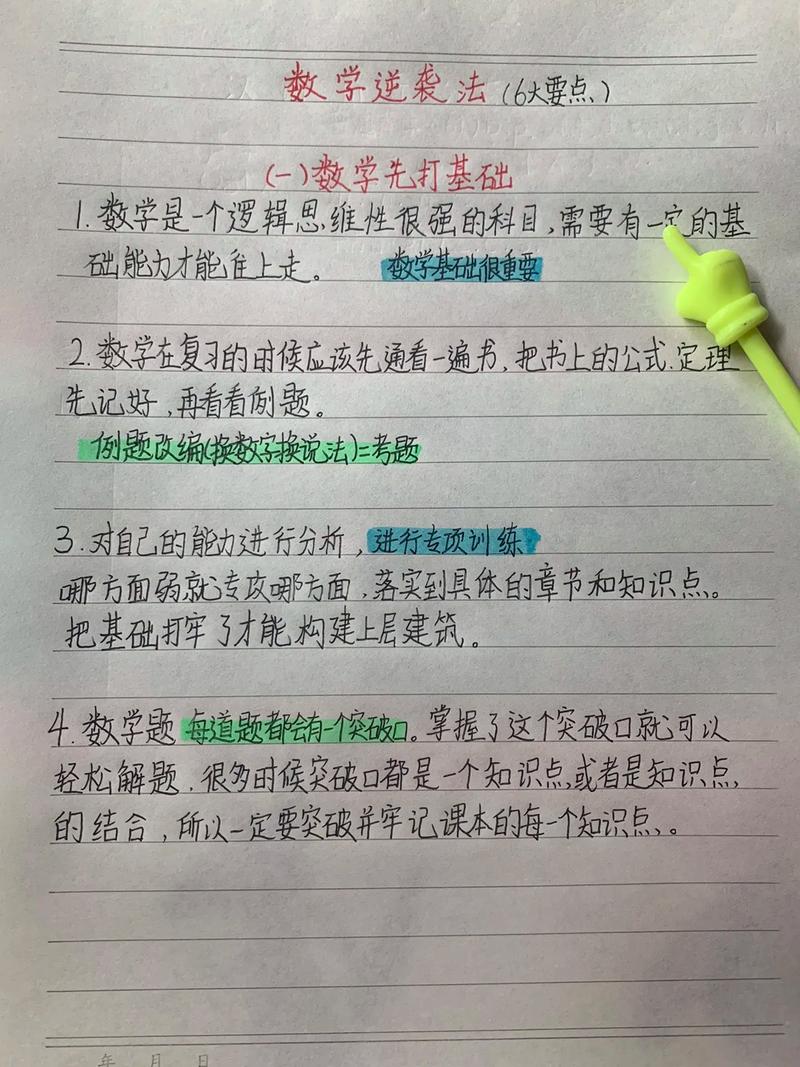 数学逆袭法(6大要点)
(一)数学先打基础
1.数学是一个逻辑思维性很强的科目,需要有一定的基
础能力才能往上走。 数学基础很重要
2.数学在复习的时候应该先通看一遍书,把书上的公式.定理
先记好,再看看例题。
例题改编(换数字换说法)=考题
3.对自己的能力进行分析,进行专项训练
哪方面弱就专攻哪方面,落实到具体的章节和知识点。
把基础打牢了才能构建上层建筑。
4.数学题每道题都会有一个突破口。掌握了这个突破口就可以
轻松解题.很多时候突破口都是一个知识点或者是知识点
的结合,所以一定要突破并牢记课本的每一个知识点。
年 月 日